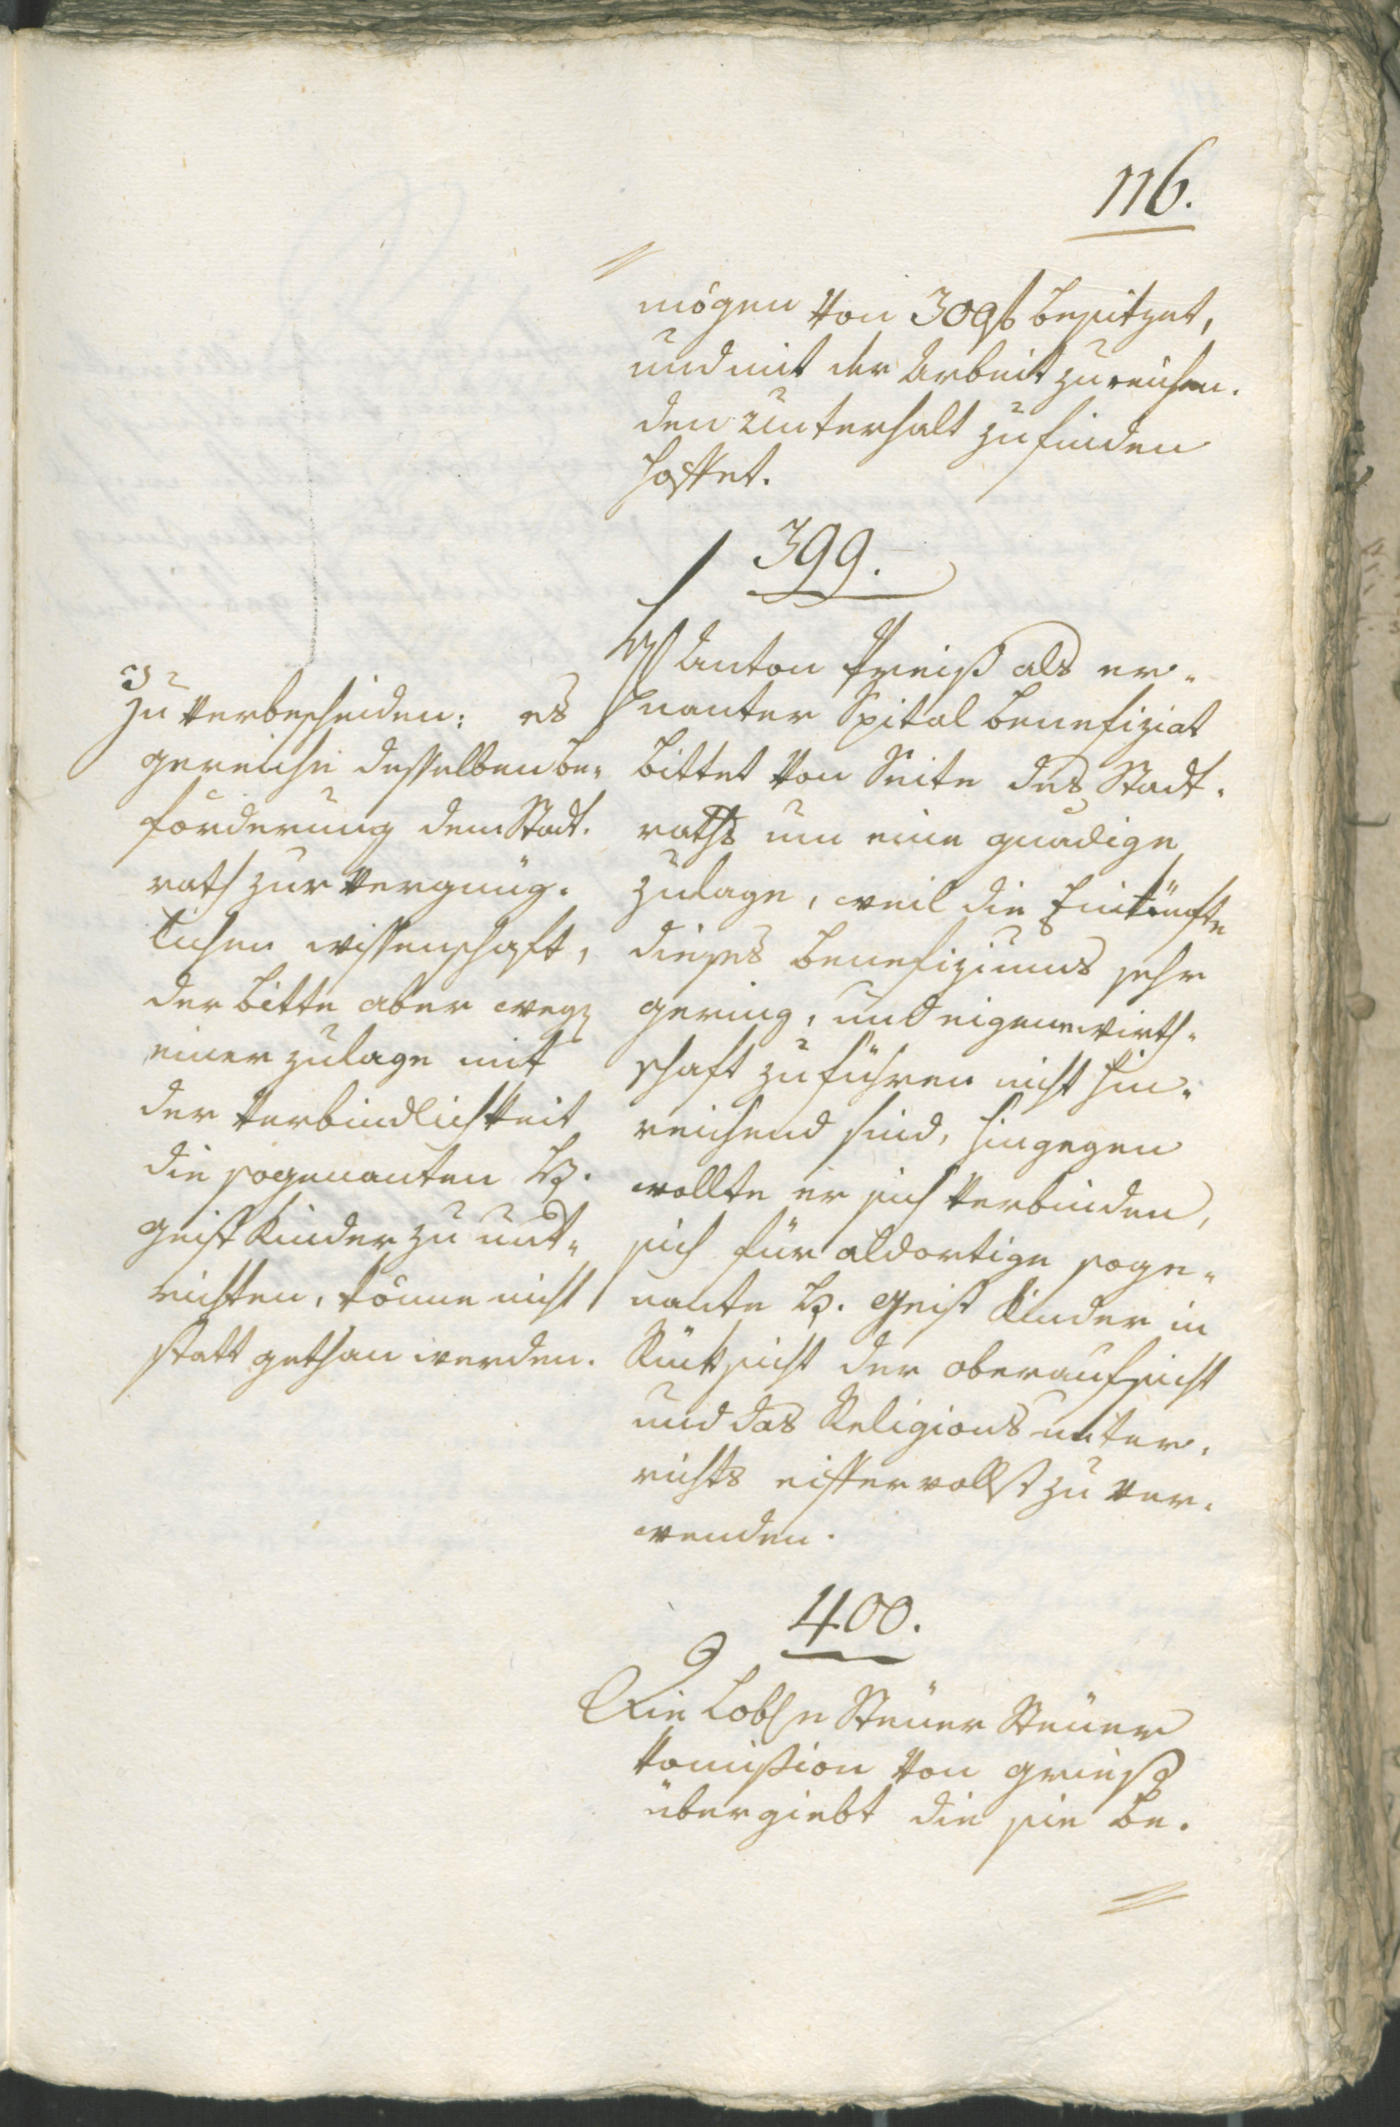 116.
mögen von 300f besitzet,
und mit der Arbeit zureichen-
den Unterhalt zu finden
hoffet.
399.
Anton Preiß als er-
nanter Spital benefiziat
bittet von Seite des Stadt-
raths um eine gnädige
zulage, weil die Einkünfte
dieses benefiziums sehr
gering, und eigene wirth-
schaft zu führen nicht hin-
reichend sind, hingegen
wollte er sich verbinden,
sich für aldortige soge-
nante H. Geist Kinder in
Rüksicht der oberaufsicht
und das Religions unter-
richts eiffervollst zu ver-
wenden.
Zu verbescheiden: es
gereiche desselben be-
förderung dem Stadt-
rath zur vergnüg-
lichen wissenschaft,
der bitte aber wegen
einer zulage mit
der Verbindlichkeit
die sogenanten H.
Geist Kinder zu unt-
richten, könne nicht
statt gethan werden.
400.
Die Lobl Steüer Steüer
komißion von Grieß
übergiebt die sie be-